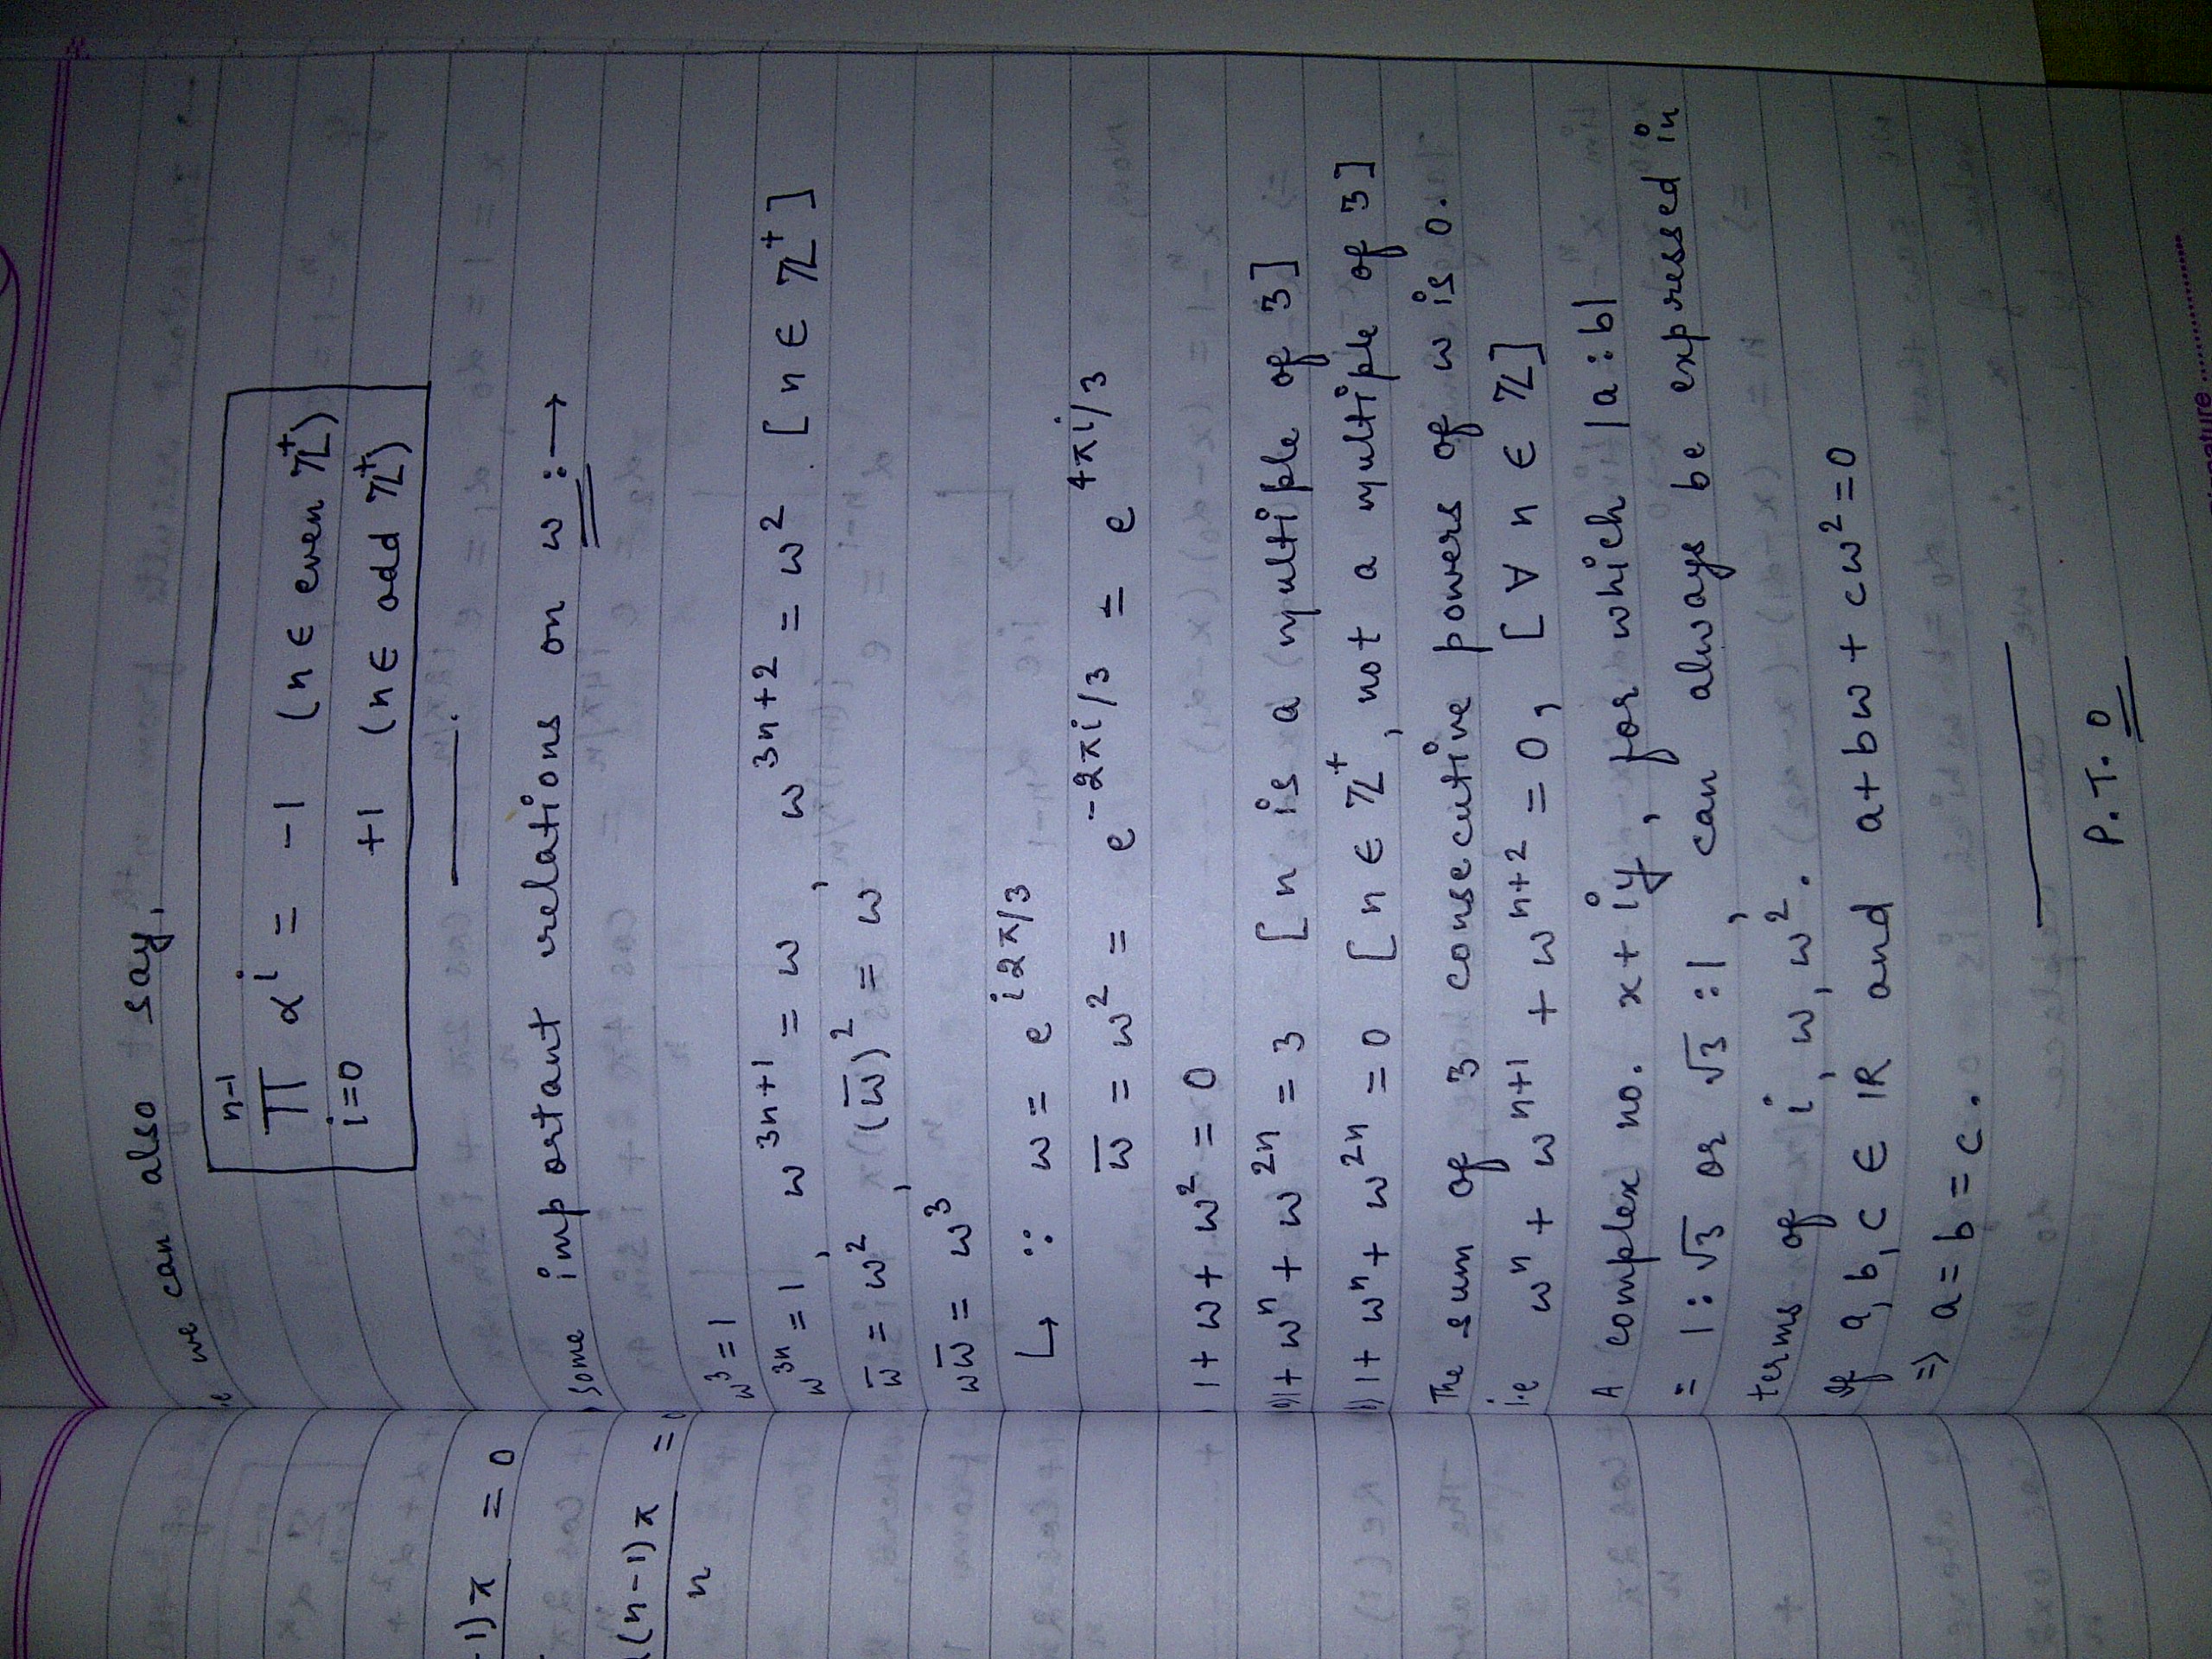 -1)π = 0
(n-1)π =
n
we can also say,
n-1
∏ αⁱ = -1 (n ∈ even ℤ⁺)
i=0
+1 (n ∈ odd ℤ⁺)
some important relations on ω :→
ω³ = 1
ω³ⁿ = 1, ω³ⁿ⁺¹ = ω, ω³ⁿ⁺² = ω². [n ∈ ℤ⁺]
ω̅ = ω², (ω̅)² = ω
ωω̅ = ω³
↳ ∵ ω = e^{i2π/3}
ω̅ = ω² = e^{-2πi/3} = e^{4πi/3}
1 + ω + ω² = 0
1 + ωⁿ + ω²ⁿ = 3 [n is a multiple of 3]
1 + ωⁿ + ω²ⁿ = 0 [n ∈ ℤ⁺, not a multiple of 3]
The sum of 3 consecutive powers of ω is 0.
i.e ωⁿ + ωⁿ⁺¹ + ωⁿ⁺² = 0, [∀ n ∈ ℤ]
A complex no. x + iy, for which |a : b|
= 1 : √3 or √3 : 1, can always be expressed in
terms of i, ω, ω².
If a, b, c ∈ ℝ and a + bω + cω² = 0
⇒ a = b = c.
P.T.O